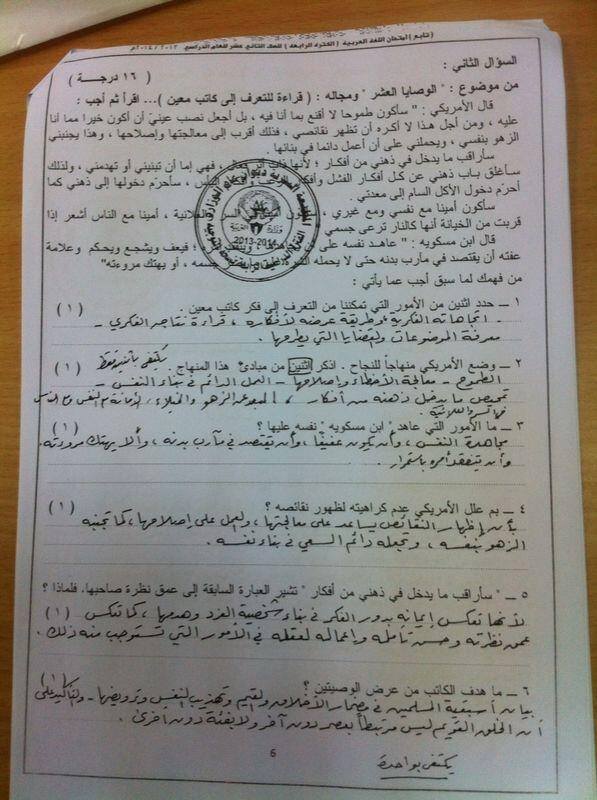 ( تابع ) امتحان اللغة العربية ( الفترة الرابعة ) للصف الثاني عشر للعام الدراسي ٢٠١٣ / ٢٠١٤م
السؤال الثاني :
( ١٦ درجـــة )
من موضوع : " الوصايا العشر " ومجاله : ( قراءة للتعرف إلى كاتب معين )... اقرأ ثم أجب :
قال الأمريكي : " سأكون طموحا لا أقنع بما أنا فيه ، بل أجعل نصب عينيّ أن أكون خيرا مما أنا
عليه ، ومن أجل هذا لا أكره أن تظهر نقائصي ، فذلك أقرب إلى معالجتها وإصلاحها ، وهذا يجنبني
الزهو بنفسي ، ويحملني على أن أعمل دائما في بنائها .
سأراقب ما يدخل في ذهني من أفكار ؛ لأنها ذات أثر فعال ، فهي إما أن تبنيني أو تهدمني ، ولذلك
سأغلق باب ذهني عن كل أفكار الفشل وأفكار الناس ، سأحرّم دخولها إلى ذهني كما
أحرّم دخول الأكل السام إلى معدتي .
سأكون أمينا مع نفسي ومع غيري ، السر والعلانية ، أمينا مع الناس أشعر إذا
قربت من الخيانة أنها كالنار ترعى جسمي
قال ابن مسكويه : " عاهد نفسه على ؛ فيعف ويشجع ويحكم وعلامة
عفته أن يقتصد في مآرب بدنه حتى لا يحمله جسمه ، أو يهتك مروءته"
وزارة
2013-2014
من فهمك لما سبق أجب عما يأتي :
١ – حدد اثنين من الأمور التي تمكننا من التعرف إلى فكر كاتب معين .
( ١ )
اتجاهاته الفكرية وطريقة عرضه لأفكاره ، قراءة نتاجه الفكري –
معرفة الموضوعات والقضايا التي يطرحها .
٢ – وضع الأمريكي منهاجاً للنجاح . اذكر اثنين من مبادئ هذا المنهاج .
( ١ )
يكتفى باثنين فقط
الطموح – معالجة الأخطاء وإصلاحها – العمل الدائم في بناء النفس –
تمحيص ما يدخل ذهنه من أفكار ، البعد عن الزهو والخيلاء ، الأمانة مع النفس ومع الناس
والعلانية .
٣ – ما الأمور التي عاهد " ابن مسكويه " نفسه عليها ؟
( ١ )
مجاهدة النفس ، وأن يكون عفيفا ، وأن يقتصد في مآرب بدنه ، وألا يهتك مروءته .
وأن يتفقد أمره باستمرار .
٤ – بم علل الأمريكي عدم كراهيته لظهور نقائصه ؟
( ١ )
بأن إظهار النقائص يساعد على معالجتها ، والعمل على إصلاحها ، كما تجنبه
الزهو بنفسه ، وتجعله دائم السعي في بناء نفسه .
٥ – " سأراقب ما يدخل في ذهني من أفكار " تشير العبارة السابقة إلى عمق نظرة صاحبها. فلماذا ؟
لأنها تعكس إيمانه بدور الفكر في بناء شخصية الفرد وهدمها ، كما تعكس
( ١ )
عمق نظرته وحسن تأمله وإعماله لعقله في الأمور التي تستوجب منه ذلك .
٦ – ما هدف الكاتب من عرض الوصيتين ؟
بيان أسبقية المسلمين في مضمار الأخلاق والقيم وتهذيب النفس وترويضها – والتأكيد على
أن الخلق القويم ليس مرتبطاً بعصر دون آخر ولا بفئة دون أخرى .
6
يكتفى بواحدة